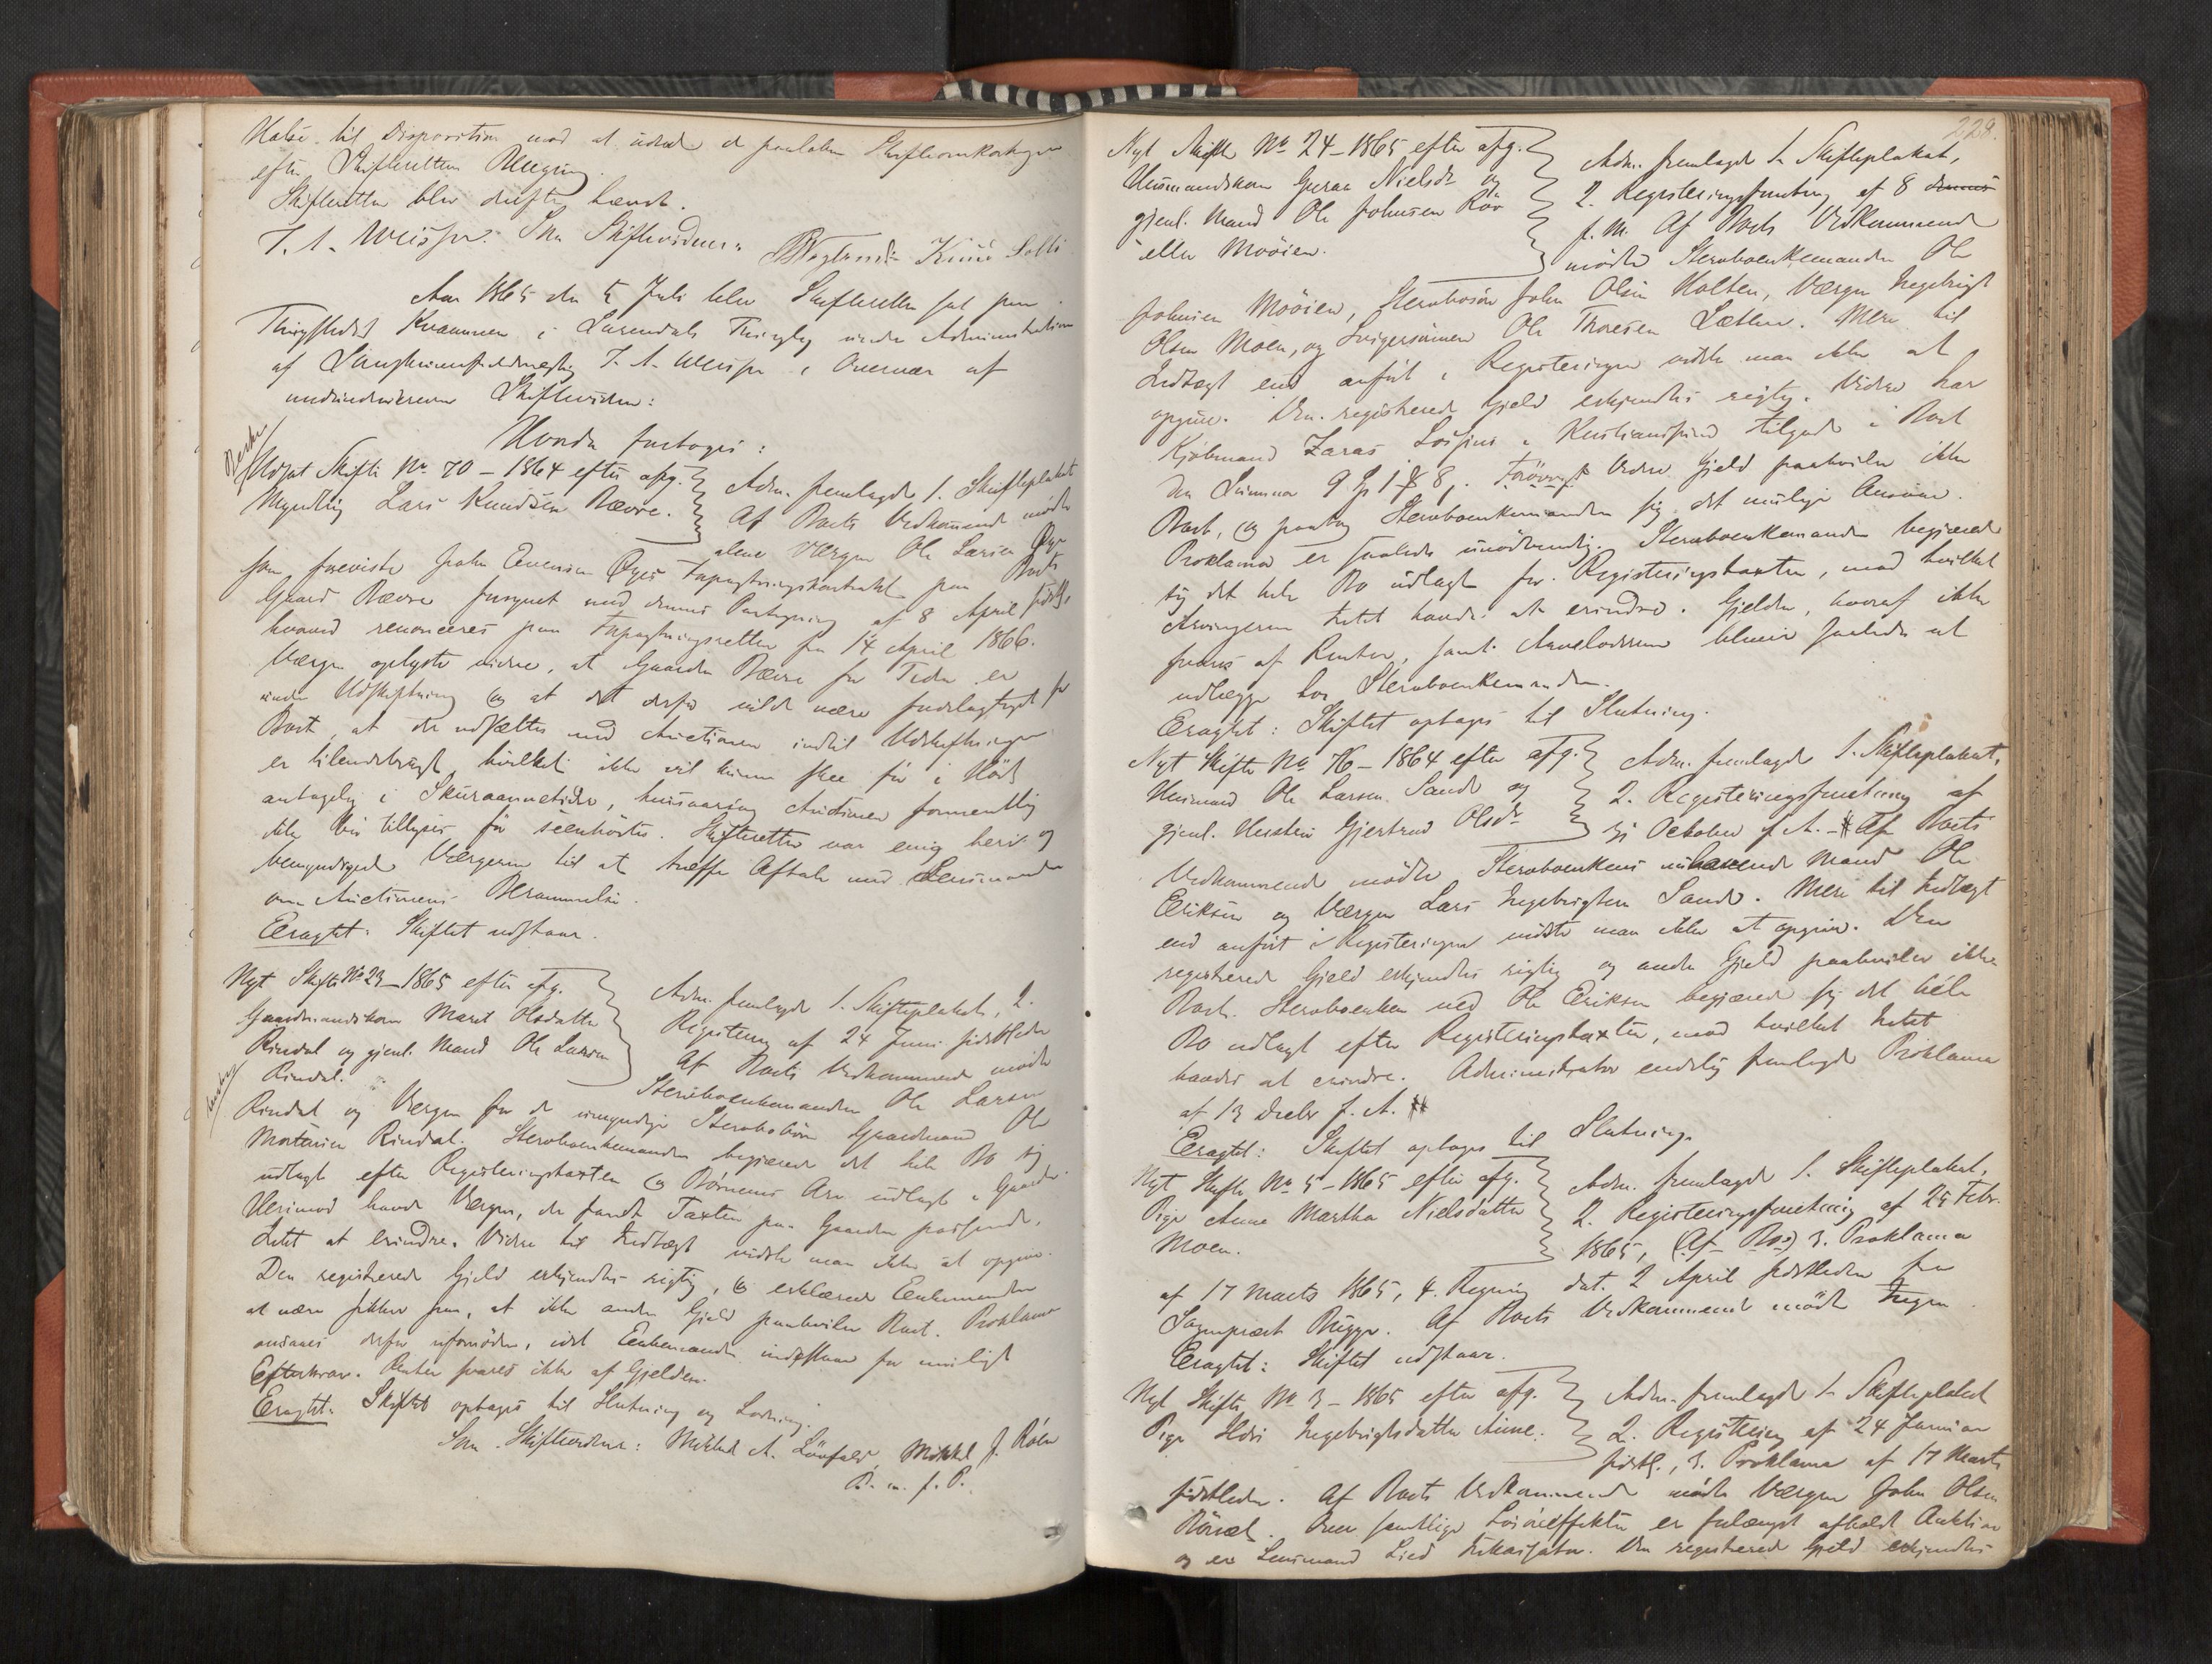 Halse til Disposition mod at udrede de paaløbne Skifteomkostninger
efter Skifterettens Beregning.
Skifteretten blev derefter hævet.
J. A. Weisser. Som Skiftevidner:
Aar 1865 den 5 Juli blev Skifteretten sat paa
Thingstedet Kvammen i Surendals Thinglag under Administration
af J. A. Weisser i Overvær af
undertegnede Skiftevidner:
Hvorda foretoges:
Udsat Skifte No 70 - 1864 efter afg.
Myndling Lars Knudsen Bævre.
Adm. fremlagde 1. Skifteplakat
Af Boets Vedkommende mødte
alene Værgen Ole Larsen Øye
som foreviste John Evensen Øyes Forpagtningskontrakt paa Boets
Gaard Bævre forsynet med dennes Paategning af 8 April sidstl,
hvorved renonceres paa Forpagtningsretten fra 14 April 1866.
Værgen oplyste videre, at Gaarden Bævre for Tiden er
under Udskiftning og at det derfor vilde være fordelagtigst for
Boet, at der udsættes med Auctionen indtil Udskiftningen
er tilendebragt, hvilket ikke vil kunne skee før i Høst
antagelig i Skuraannetiden, hvisaarsag Auctionen formentlig
ikke bør tillyses før seenhøstes. Skifteretten var enig heri og
bemyndigede Værgerne til at træffe Aftale med Lensmanden
om Auctionens Berammelse.
Eragtet: Skiftet udstaar.
Nyt Skifte No 23 - 1865 efter afg.
Gaardmandskone Marit Olsdatter
Rindal og gjenl. Mand Ole Larsen
Rindal.
Adm. fremlagde 1. Skifteplakat, 2.
Registering af 24 Juni sidstleden
Af Boets Vedkommende mødte
Sterboenkemanden Ole Larsen
Rindal og Værgen for de umyndige Sterbobørn Gaardmand Ole
Mortensen Rindal. Sterboenkemanden begjærede det hele Bo sig
udlagt efter Registeringstaxten og Børnenes Arv udlagt i Gaarden.
Herimod havde Værgen, der fandt Taxten paa Gaarden passende,
Intet at erindre. Videre til Indtægt vidste man ikke at opgive.
Den registerede Gjeld erkjendtes rigtig, og erklærede Enkemanden
at være sikker paa, at ikke anden Gjeld paahviler Boet. Proklama
ansaaes derfor ufornøden, idet Enkemanden indestaar for muligt
Efterkrav. Renter svares ikke af Gjelden.
Eragtet: Skiftet optages til Slutning og Lodning.
Som Skiftevidner: Mikkel A. Lønseth, Mikkel J. Røen
P. m. f. P.
228.
Nyt Skifte No 24 - 1865 efter afg.
Huusmandskone Guraa Nielsdr og
gjenl. Mand Ole Johnsen Røv
eller Moøien.
Adm. fremlagde 1 Skifteplakat,
2. Registeringsforretning af 8 dennes
f. M. Af Boets Vedkommende
mødte Sterboenkemanden Ole
Johnsen Moøien, Sterbosøn John Olsen Holten, Værgen Ingebrigt
Olsen Moen, og Svigersønnen Ole Thoresen Sæther. Mere til
Indtægt end anført i Registeringen vidste man ikke at
opgive. Den registrerede Gjeld erkjendtes rigtig. Videre har
Kjøbmand Zaras i Kristianssund tilgode i Boet
den Summa 9 Sp 1 8. Forøvrigt videre Gjeld paahviler ikke
Boet, og paatog Sterboenkemanden sig det mulige Ansvar.
Proklama er saaledes unødvendig. Sterboenkemanden begjærede
sig det hele Bo udlagt for Registeringstaxten, mod hvilket
Arvingerne Intet havde at erindre. Gjelden, hvoraf ikke
svares af Renter, samt Arvelodderne bliver saaledes at
udlægge hos Sterboenkemanden.
Eragtet: Skiftet optages til Slutning.
Nyt Skifte No 76 - 1864 efter afg.
Huusmand Ole Larsen Sande og
gjenl. Hustru Gjertrud Olsdr
Adm. fremlagde 1. Skifteplakat,
2. Registeringsforretning af
October f. A. - Af Boets
Vedkommende mødte Sterboenkens nuhavende Mand Ole
Eriksen og Værgen Lars Ingebrigtsen Sande. Mere til Indtægt
end anført i Registeringen vidste man ikke at opgive. Den
registrerede Gjeld erkjendtes rigtig og anden Gjeld paahviler ikke
Boet. Sterboenken ved Ole Eriksen begjærede sig det hele
Bo udlagt efter Registeringstaxten, mod hvilket Intet
havdes at erindre. Administrator endelig fremlagde Proklama
af 13 Decbr f. A.
Eragtet: Skiftet optages til Slutning.
Nyt Skifte No 5 - 1865 efter afg.
Pige Anne Martha Nielsdatter
Moen.
Adm. fremlagde 1. Skifteplakat,
2. Registeringsforretning af 25 Febr.
1865, 3. Proklama
af 17 Marts 1865, 4. Regning dat. 2 April sidstleden fra
Sogneprest Bugge. Af Boets Vedkommende mødte Ingen
Eragtet: Skiftet udstaar.
Nyt Skifte No 3 - 1865 efter afg.
Pige Ildri Ingebrigtsdatter Aune.
Adm. fremlagde 1 Skifteplakat
2. Registering af 24 Januar
sidstl., 3. Proklama af 17 Marts
sidstleden. Af Boets Vedkommende mødte Værgen John Olsen
. Over samtlige Løsøreeffekter er forlængst afholdt Auktion
og er Lensmand Lied Inkassator. Den registrerede Gjeld erkjendtes